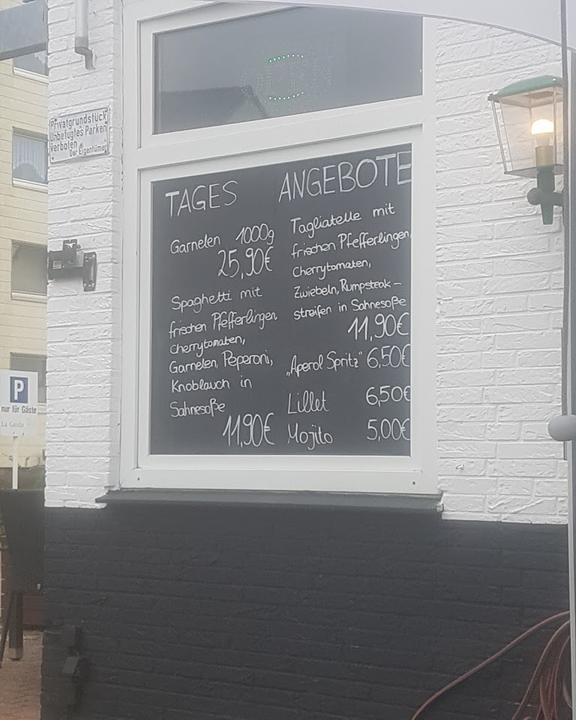 Privatgrundstück
Unbefugtes Parken
verboten
Der Eigentümer
TAGES ANGEBOTE
Garnelen 1000g
25,90€
Spaghetti mit
frischen Pfefferlingen
Cherrytomaten,
Garnelen, Peperoni,
Knoblauch in
Sahnesoße
11,90€
Tagliatelle mit
frischen Pfefferlingen,
Cherrytomaten,
Zwiebeln, Rumpsteak-
streifen in Sahnesoße
11,90€
„Aperol Spritz" 6,50€
Lillet 6,50€
Mojito 5,00€
P
nur für Gäste